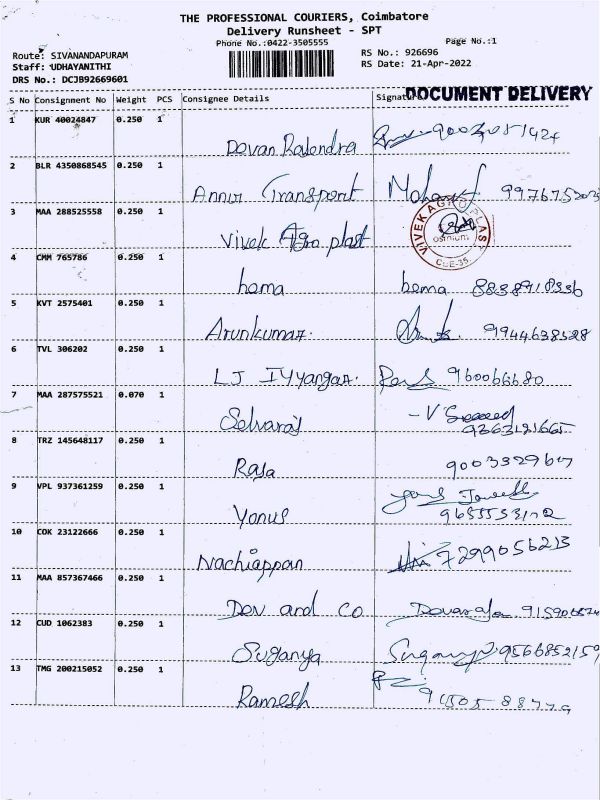 THE PROFESSIONAL COURIERS, Coimbatore
Delivery Runsheet - SPT
Phone No.:0422-3505555
Page No.:1
Route: SIVANANDAPURAM
RS No.: 926696
Staff: UDHAYANITHI
RS Date: 21-Apr-2022
DRS No.: DCJB92669601
DOCUMENT DELIVERY
S No Consignment No Weight PCS Consignee Details
1 KUR 40024847 0.250 1
Devan Rajendra
2 BLR 4350868545 0.250 1
Annur Transport
3 MAA 288525558 0.250 1
Vivek Agro plast
VIVEK AGRO PLAST
CBE-35
4 CMM 765786 0.250 1
hema hema 8838918336
5 KVT 2575401 0.250 1
Arunkumar. 9944638528
6 TVL 306202 0.250 1
LJ Iyyangar. 960066680
7 MAA 287575521 0.070 1
Selvaraj
8 TRZ 145648117 0.250 1
Raja
9 VPL 937361259 0.250 1
Yonus
10 COK 23122666 0.250 1
Nachiappan 7299056213
11 MAA 857367466 0.250 1
Dev and Co
12 CUD 1062383 0.250 1
Suganya 9566852159
13 TMG 200215052 0.250 1
Ramesh